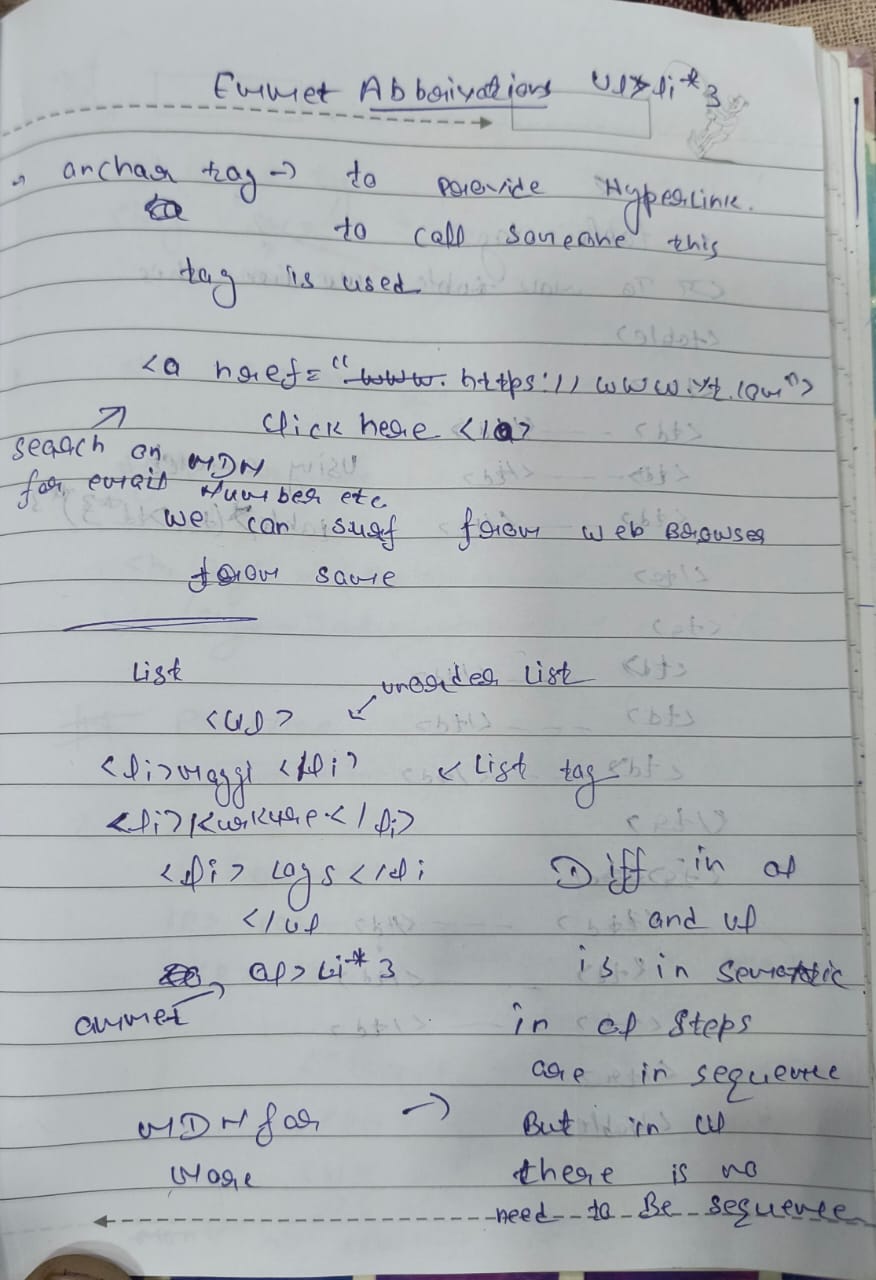 Emmet Abbrivations ul>li*3
→ anchar tag → to provide Hyperlink.
to call someone this
tag is used
<a href="www. https://www.yt.com">
Click here </a>
search on MDN
for email Number etc
we can surf from web Browser
from same
List
unorder List
<ul>
<li>maggi </li> ← List tag
<li>Kurkure</li>
<li> Lays </li
</ul
ol>Li*3
ammet
Diff in ol
and ul
is in semantic
in ol steps
are in sequence
But in ul
there is no
need to Be sequence
MDN for →
More